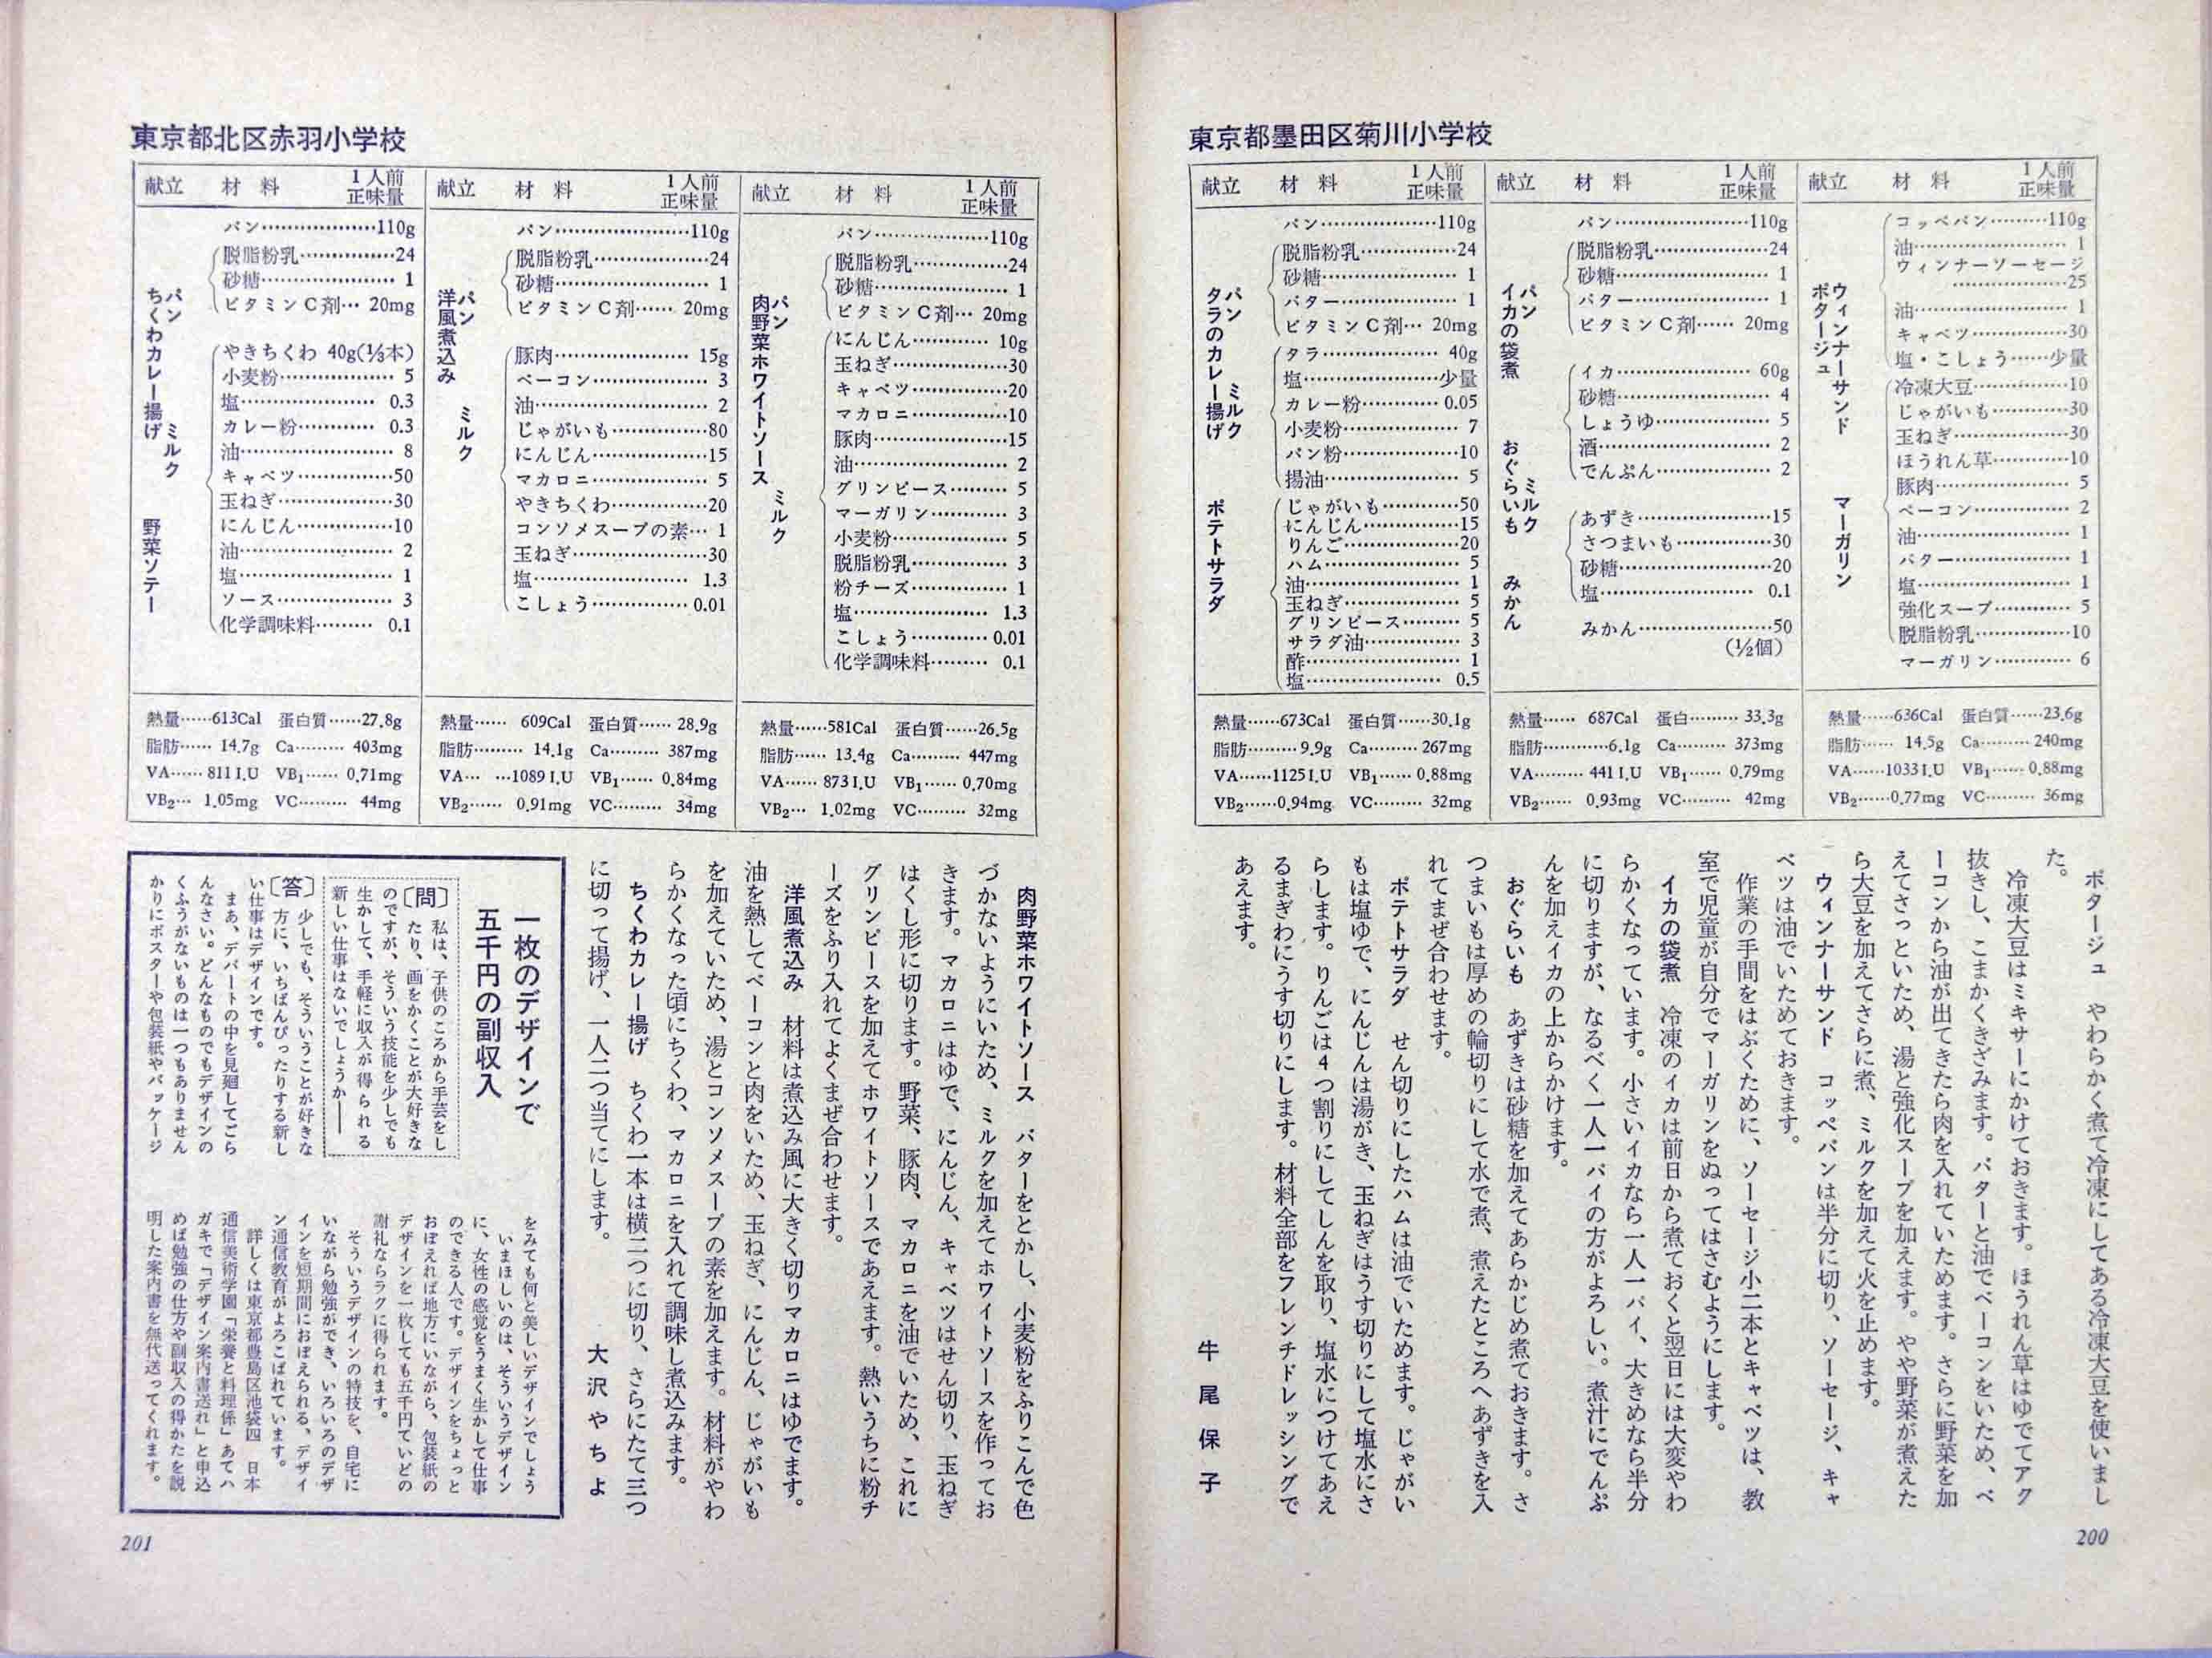 東京都墨田区菊川小学校
献立 材料 1人前正味量
ウィンナーサンド マーガリン
ポタージュ
コッペパン………110g
油……………… 1
ウィンナーソーセージ
……………25
油……………… 1
キャベツ…………30
塩・こしょう……少量
冷凍大豆…………10
じゃがいも………30
玉ねぎ……………30
ほうれん草………10
豚肉……………… 5
ベーコン………… 2
油……………… 1
バター…………… 1
塩……………… 1
強化スープ……… 5
脱脂粉乳…………10
マーガリン……… 6
熱量……636Cal 蛋白質……23.6g
脂肪…… 14.5g Ca……… 240mg
VA……1033I.U VB₁…… 0.88mg
VB₂……0.77mg VC……… 36mg
献立 材料 1人前正味量
パン ミルク
イカの袋煮 おぐらいも みかん
パン………………110g
脱脂粉乳……………24
砂糖……………… 1
バター…………… 1
ビタミンC剤…… 20mg
イカ……………… 60g
砂糖……………… 4
しょうゆ………… 5
酒……………… 2
でんぷん………… 2
あずき……………15
さつまいも………30
砂糖………………20
塩……………… 0.1
みかん……………50
(½個)
熱量…… 687Cal 蛋白……… 33.3g
脂肪…………6.1g Ca……… 373mg
VA……… 441I.U VB₁…… 0.79mg
VB₂…… 0.93mg VC……… 42mg
献立 材料 1人前正味量
パン ミルク
タラのカレー揚げ ポテトサラダ
パン………………110g
脱脂粉乳……………24
砂糖……………… 1
バター…………… 1
ビタミンC剤… 20mg
タラ……………… 40g
塩………………少量
カレー粉………… 0.05
小麦粉…………… 7
パン粉……………10
揚油……………… 5
じゃがいも………50
にんじん…………15
りんご……………20
ハム……………… 5
油……………… 1
玉ねぎ…………… 5
グリンピース…… 5
サラダ油………… 3
酢……………… 1
塩……………… 0.5
熱量……673Cal 蛋白質……30.1g
脂肪………9.9g Ca……… 267mg
VA……1125I.U VB₁…… 0.88mg
VB₂……0.94mg VC……… 32mg
ポタージュ やわらかく煮て冷凍にしてある冷凍大豆を使いまし
た。
冷凍大豆はミキサーにかけておきます。ほうれん草はゆでてアク
抜きし、こまかくきざみます。バターと油でベーコンをいため、ベ
ーコンから油が出てきたら肉を入れていためます。さらに野菜を加
えてさっといため、湯と強化スープを加えます。やや野菜が煮えた
ら大豆を加えてさらに煮、ミルクを加えて火を止めます。
ウィンナーサンド コッペパンは半分に切り、ソーセージ、キャ
ベツは油でいためておきます。
作業の手間をはぶくために、ソーセージ小二本とキャベツは、教
室で児童が自分でマーガリンをぬってはさむようにします。
イカの袋煮 冷凍のイカは前日から煮ておくと翌日には大変やわ
らかくなっています。小さいイカなら一人一パイ、大きめなら半分
に切りますが、なるべく一人一パイの方がよろしい。煮汁にでんぷ
んを加えイカの上からかけます。
おぐらいも あずきは砂糖を加えてあらかじめ煮ておきます。さ
つまいもは厚めの輪切りにして水で煮、煮えたところへあずきを入
れてまぜ合わせます。
ポテトサラダ せん切りにしたハムは油でいためます。じゃがい
もは塩ゆで、にんじんは湯がき、玉ねぎはうす切りにして塩水にさ
らします。りんごは4つ割りにしてしんを取り、塩水につけてあえ
るまぎわにうす切りにします。材料全部をフレンチドレッシングで
あえます。
牛尾保子
200
東京都北区赤羽小学校
献立 材料 1人前正味量
パン
肉野菜ホワイトソース ミルク
パン………………110g
脱脂粉乳……………24
砂糖……………… 1
ビタミンC剤… 20mg
にんじん………… 10g
玉ねぎ……………30
キャベツ…………20
マカロニ…………10
豚肉………………15
油……………… 2
グリンピース…… 5
マーガリン……… 3
小麦粉…………… 5
脱脂粉乳………… 3
粉チーズ………… 1
塩……………… 1.3
こしょう…………0.01
化学調味料……… 0.1
熱量……581Cal 蛋白質……26.5g
脂肪…… 13.4g Ca……… 447mg
VA…… 873I.U VB₁…… 0.70mg
VB₂… 1.02mg VC……… 32mg
献立 材料 1人前正味量
パン
洋風煮込み ミルク
パン………………110g
脱脂粉乳……………24
砂糖……………… 1
ビタミンC剤…… 20mg
豚肉……………… 15g
ベーコン………… 3
油……………… 2
じゃがいも………80
にんじん…………15
マカロニ………… 5
やきちくわ………20
コンソメスープの素… 1
玉ねぎ……………30
塩……………… 1.3
こしょう………… 0.01
熱量…… 609Cal 蛋白質…… 28.9g
脂肪……… 14.1g Ca……… 387mg
VA… …1089I.U VB₁…… 0.84mg
VB₂…… 0.91mg VC……… 34mg
献立 材料 1人前正味量
パン ミルク
ちくわカレー揚げ 野菜ソテー
パン………………110g
脱脂粉乳……………24
砂糖……………… 1
ビタミンC剤… 20mg
やきちくわ 40g(⅓本)
小麦粉…………… 5
塩……………… 0.3
カレー粉………… 0.3
油……………… 8
キャベツ…………50
玉ねぎ……………30
にんじん…………10
油……………… 2
塩……………… 1
ソース…………… 3
化学調味料……… 0.1
熱量……613Cal 蛋白質……27.8g
脂肪…… 14.7g Ca……… 403mg
VA…… 811I.U VB₁…… 0.71mg
VB₂… 1.05mg VC……… 44mg
肉野菜ホワイトソース バターをとかし、小麦粉をふりこんで色
づかないようにいため、ミルクを加えてホワイトソースを作ってお
きます。マカロニはゆで、にんじん、キャベツはせん切り、玉ねぎ
はくし形に切ります。野菜、豚肉、マカロニを油でいため、これに
グリンピースを加えてホワイトソースであえます。熱いうちに粉チ
ーズをふり入れてよくまぜ合わせます。
洋風煮込み 材料は煮込み風に大きく切りマカロニはゆでます。
油を熱してベーコンと肉をいため、玉ねぎ、にんじん、じゃがいも
を加えていため、湯とコンソメスープの素を加えます。材料がやわ
らかくなった頃にちくわ、マカロニを入れて調味し煮込みます。
ちくわカレー揚げ ちくわ一本は横二つに切り、さらにたて三つ
に切って揚げ、一人二つ当てにします。
大沢やちよ
一枚のデザインで
五千円の副収入
〔問〕私は、子供のころから手芸をし
たり、画をかくことが大好きな
のですが、そういう技能を少しでも
生かして、手軽に収入が得られる
新しい仕事はないでしょうか――
〔答〕少しでも、そういうことが好きな
方に、いちばんぴったりする新し
い仕事はデザインです。
まあ、デパートの中を見廻してごら
んなさい。どんなものでもデザインの
くふうがないものは一つもありません
かりにポスターや包装紙やパッケージ
をみても何と美しいデザインでしょう
いまほしいのは、そういうデザイン
に、女性の感覚をうまく生かして仕事
のできる人です。デザインをちょっと
おぼえれば地方にいながら、包装紙の
デザインを一枚しても五千円ていどの
謝礼ならラクに得られます。
そういうデザインの特技を、自宅に
いながら勉強ができ、いろいろのデザ
インを短期間におぼえられる、デザイ
ン通信教育がよろこばれています。
詳しくは東京都豊島区池袋四 日本
通信美術学園「栄養と料理係」あてハ
ガキで「デザイン案内書送れ」と申込
めば勉強の仕方や副収入の得かたを説
明した案内書を無代送ってくれます。
201